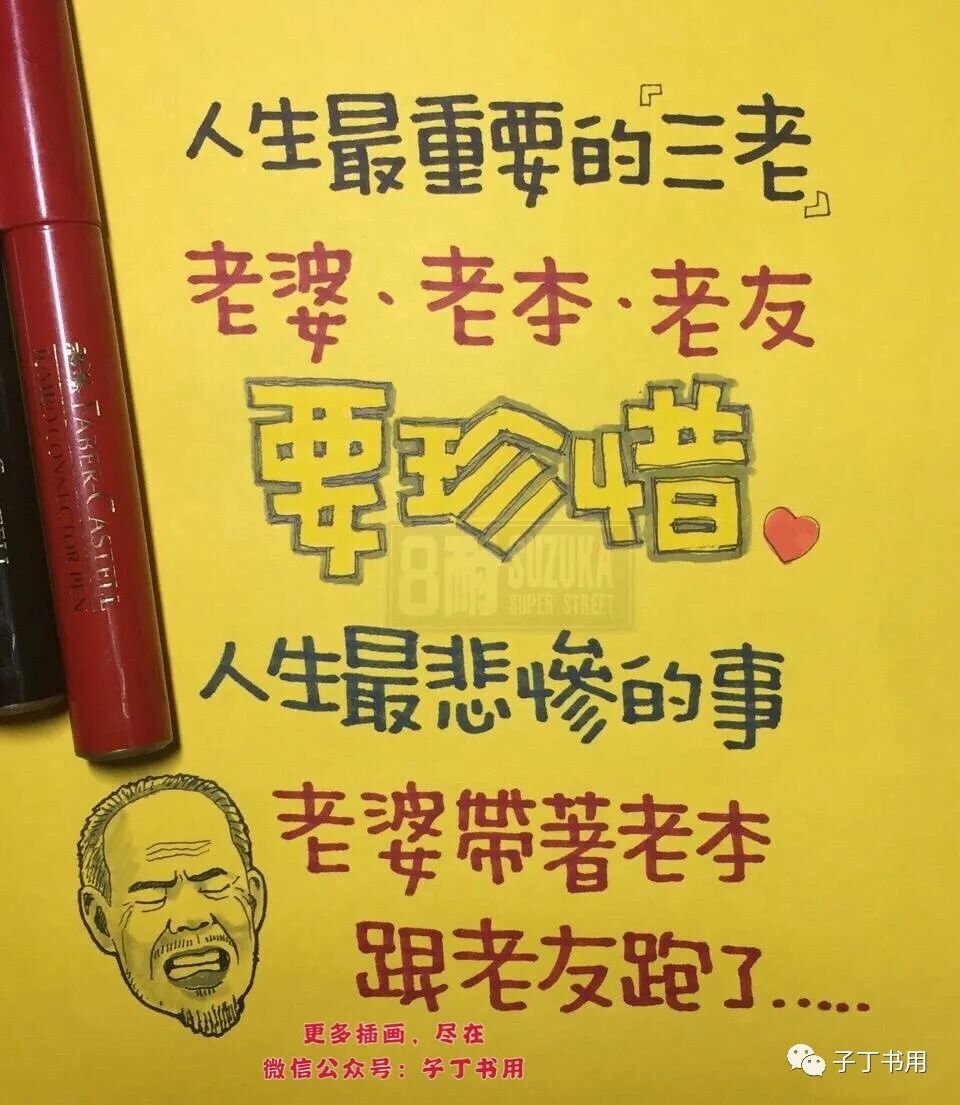 人生最重要的『三老』
老婆、老本、老友
要珍惜
人生最悲慘的事
老婆帶著老本
跟老友跑了......
FABER-CASTELL
NAIPO CONNECTOR PEN
8耐 SUZUKA
SUPER STREET
更多插画，尽在
微信公众号：子丁书用
子丁书用